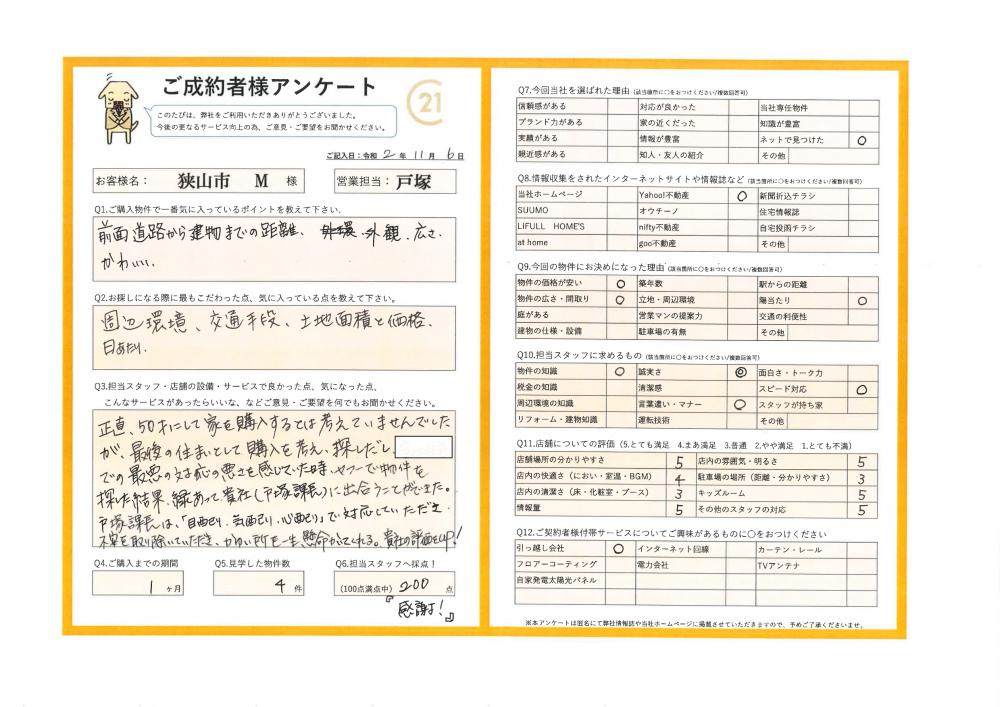 ご成約者様アンケート
21
このたびは、弊社をご利用いただきありがとうございました。
今後の更なるサービス向上の為、ご意見・ご要望をお聞かせください。
ご記入日：令和 2 年 11 月 6 日
お客様名： 狭山市 M 様
営業担当： 戸塚
Q1.ご購入物件で一番気に入っているポイントを教えて下さい。
前面道路から建物までの距離、外観、広さ、
かわいい。
Q2.お探しになる際に最もこだわった点、気に入っている点を教えて下さい。
周辺環境、交通手段、土地面積と価格、
日あたり。
Q3.担当スタッフ・店舗の設備・サービスで良かった点、気になった点、
こんなサービスがあったらいいな、などご意見・ご要望を何でもお聞かせください。
正直、50才にして家を購入するとは考えていませんでした
が、最後の住まいとして購入を考え、探しだし、
での最悪の対応の悪さを感じていた時、ヤフーで物件を
探した結果、縁あって貴社(戸塚課長)に出会うことができました。
戸塚課長は、「目配り、気配り、心配り」で対応していただき、
不安を取り除いていただき、かゆい所を一生懸命かいてくれる。貴社の評価もUP!
Q4.ご購入までの期間
1 ヶ月
Q5.見学した物件数
4 件
Q6.担当スタッフへ採点！
(100点満点中) 200 点
『感謝!』
Q7.今回当社を選ばれた理由 (該当箇所に○をおつけください/複数回答可)
信頼感がある 対応が良かった 当社専任物件
ブランド力がある 家の近くだった 知識が豊富
実績がある 情報が豊富 ネットで見つけた ○
親近感がある 知人・友人の紹介 その他
Q8.情報収集をされたインターネットサイトや情報誌など (該当箇所に○をおつけください/複数回答可)
当社ホームページ Yahoo!不動産 ○ 新聞折込チラシ
SUUMO オウチーノ 住宅情報誌
LIFULL HOME'S nifty不動産 自宅投函チラシ
at home goo不動産 その他
Q9.今回の物件にお決めになった理由 (該当箇所に○をおつけください/複数回答可)
物件の価格が安い ○ 築年数 駅からの距離
物件の広さ・間取り ○ 立地・周辺環境 陽当たり ○
庭がある 営業マンの提案力 交通の利便性
建物の仕様・設備 駐車場の有無 その他
Q10.担当スタッフに求めるもの (該当箇所に○をおつけください/複数回答可)
物件の知識 ○ 誠実さ ◎ 面白さ・トーク力
税金の知識 清潔感 スピード対応 ○
周辺環境の知識 言葉遣い・マナー ○ スタッフが持ち家
リフォーム・建物知識 運転技術 その他
Q11.店舗についての評価 (5.とても満足 4.まあ満足 3.普通 2.やや満足 1.とても不満)
店舗場所の分かりやすさ 5 店内の雰囲気・明るさ 5
店内の快適さ（におい・室温・BGM） 4 駐車場の場所（距離・分かりやすさ） 3
店内の清潔さ（床・化粧室・ブース） 3 キッズルーム 5
情報量 5 その他のスタッフの対応 5
Q12.ご契約者様付帯サービスについてご興味があるものに○をおつけください
引っ越し会社 ○ インターネット回線 カーテン・レール
フロアーコーティング 電力会社 TVアンテナ
自家発電太陽光パネル
※本アンケートは匿名にて弊社情報誌や当社ホームページに掲載させていただきますので、予めご了承くださいませ。